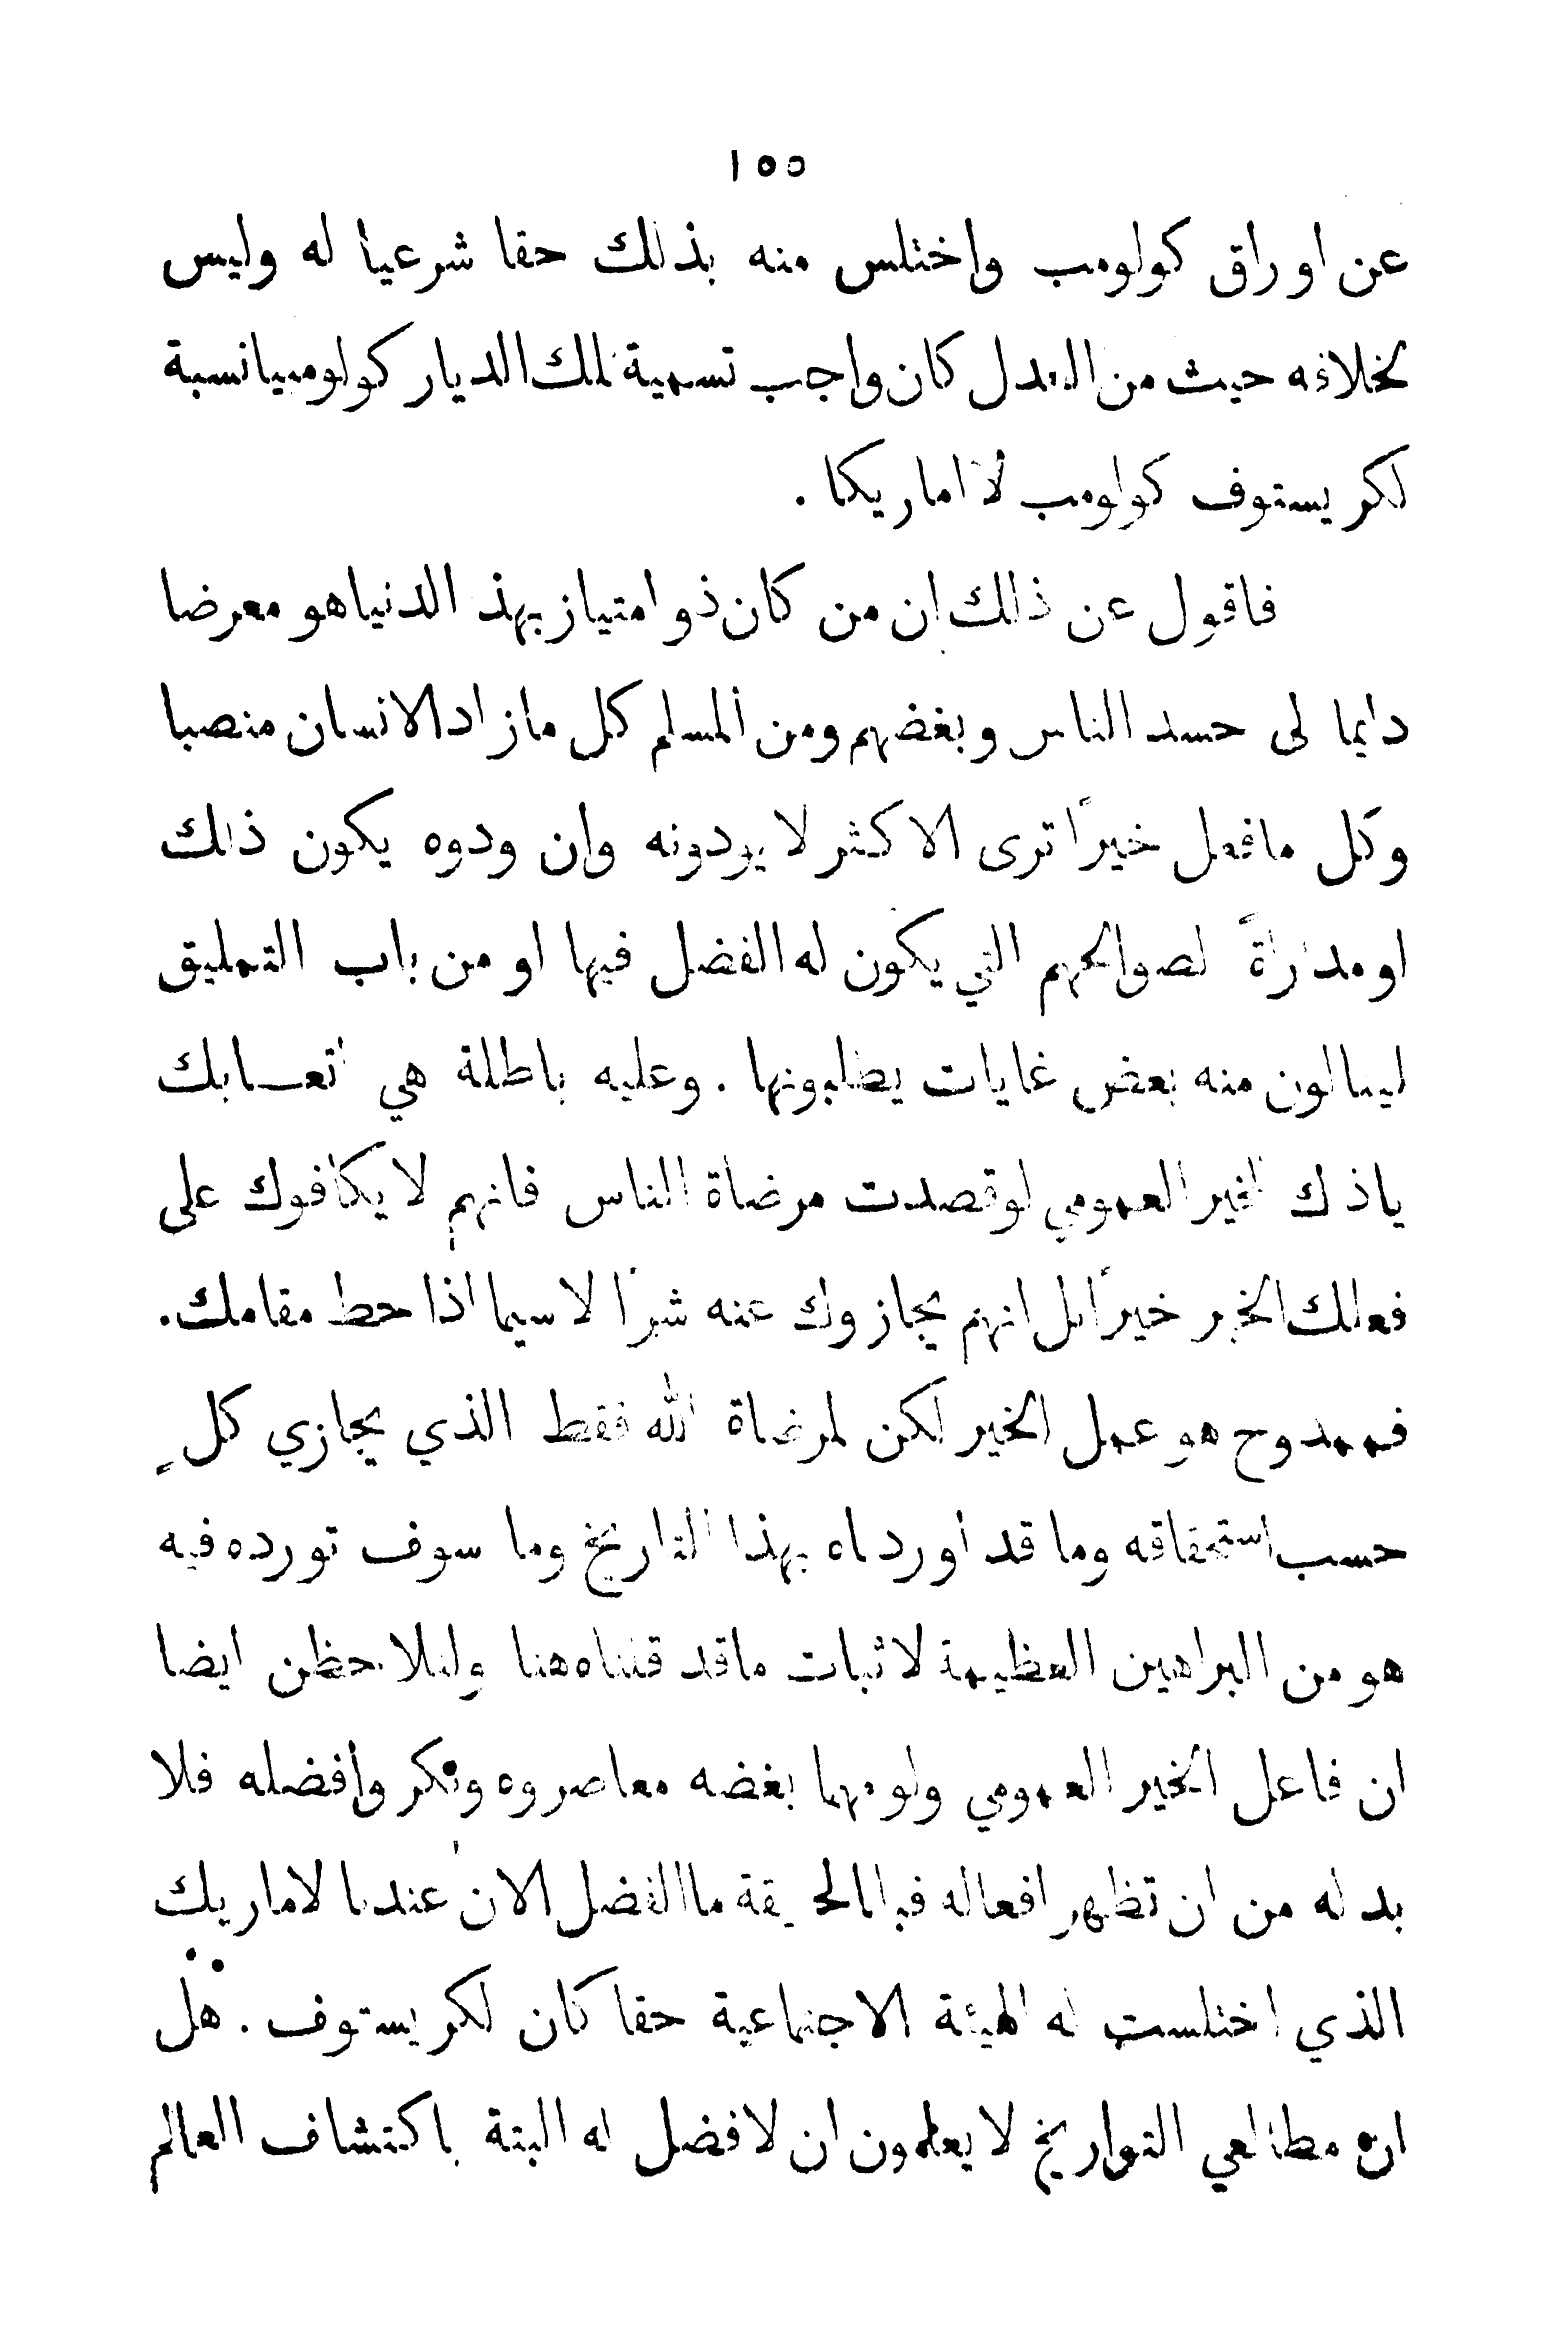 ١٥٥
عن اوراق كولومب واختلس منه بذلك حقا شرعياً له وليس
بخلافه حيث من العدل كان واجب تسمية تلك الديار كولومبيا نسبة
لكريستوف كولومب لا اماريكا .
فاقول عن ذلك ان من كان ذو امتياز بهذ الدنيا هو معرضا
دايما لى حسد الناس وبغضهم ومن المسلم كل ما زاد الانسان منصبا
وكل ما فعل خيراً ترى الاكثر لا يودونه وان ودوه يكون ذلك
او مداراةً لصوالحهم التي يكون له الفضل فيها او من باب التمليق
لينالون منه بعض غايات يطلبونها . وعليه باطلة هي اتعابك
ياذك الخير العمومي لو قصدت مرضاة الناس فانهم لا يكافوك على
فعلك الخير خيراً بل انهم يجازوك عنه شرّا لا سيما اذا حط مقامك .
فممدوح هو عمل الخير لكن لمرضاة الله فقط الذي يجازي كلٍ
حسب استحقاقه وما قد اوردناه بهذا التاريخ وما سوف نورده فيه
هو من البراهين العظيمة لاثبات ما قد قلناه هنا ولنلاحظن ايضا
ان فاعل الخير العمومي ولو مهما بغضه معاصروه ونكروا فضله فلا
بد له من ان تظهر افعاله فيا بالحقيقة ما الفضل الان عندنا لاماريك
الذي اختلست له الهيئة الاجتماعية حقا كان لكريستوف . هل
ان مطالعي التواريخ لا يعلمون ان لا فضل له البتة باكتشاف العالم